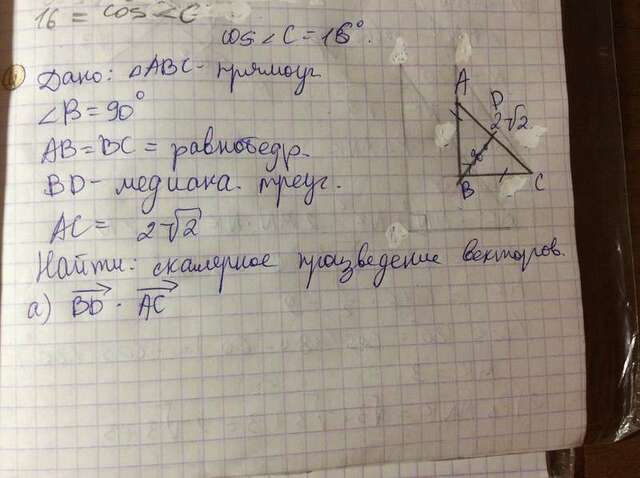 16 = cos∠C
cos∠C = 16°.
4 Дано: △ABC - прямоуг
∠B = 90°
AB = BC = равнобедр.
BD - медиана. треуг.
AC = 2√2
Найти: скалерное произведение векторов.
а) BD · AC
A
D
2√2
B
C